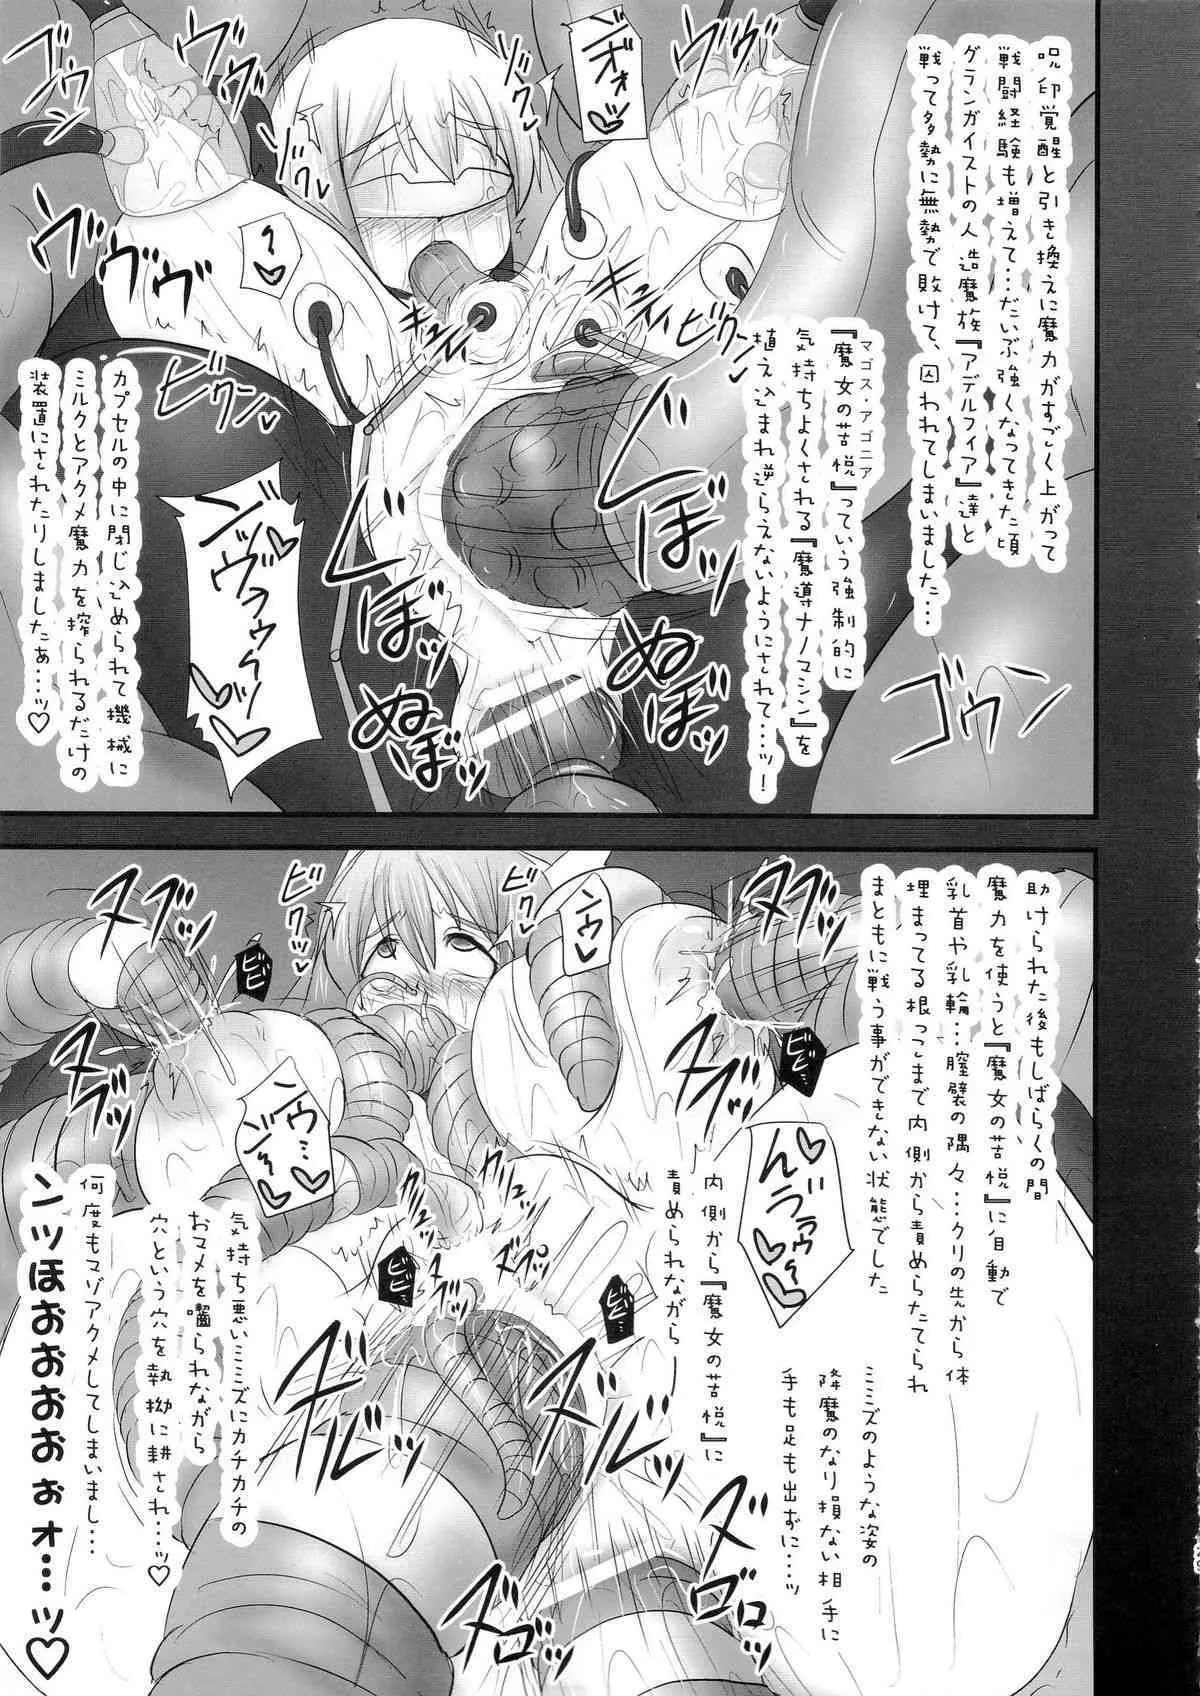 呪印覚醒と引き換えに魔力がすごく上がって
戦闘経験も増えて…だいぶ強くなってきた頃
グランガイストの人造魔族『アデルフィア』達と
戦って多勢に無勢で敗けて、囚われてしまいました…
マゴス・アゴニア
『魔女の苦悦』っていう強制的に
気持ちよくされる『魔導ナノマシン』を
植え込まれ逆らえないようにされて…ッ!
カプセルの中に閉じ込められて機械に
ミルクとアクメ魔力を搾られるだけの
装置にされたりしましたぁ…ッ♡
ゴウン
ゴウン
ヴヴヴ
ヴヴヴ
ビクンッ
ビクンッ
ぬぼッ
ぬぼッ
助けられた後もしばらくの間
魔力を使うと『魔女の苦悦』に自動で
乳首や乳輪…膣襞の隅々…クリの先から体
埋まってる根っこまで内側から責めらたてられ
まともに戦う事ができない状態でした
ミミズのような姿の
降魔のなり損ない相手に
手も足も出ずに…ッ
内側から『魔女の苦悦』に
責められながら
気持ち悪いミミズにカチカチの
おマメを嚙られながら
穴という穴を執拗に耕され…ッ♡
何度もマゾアクメしてしまいまし…
ンッほぉおおおぉォ…ッ♡
ヌブッ
ヌブッ
ビクンッ
ビクンッ
ビビッ
ビビッ
ビビッ
ビビッ
ンウ♡
ズボッ
ズボッ
ズロロ